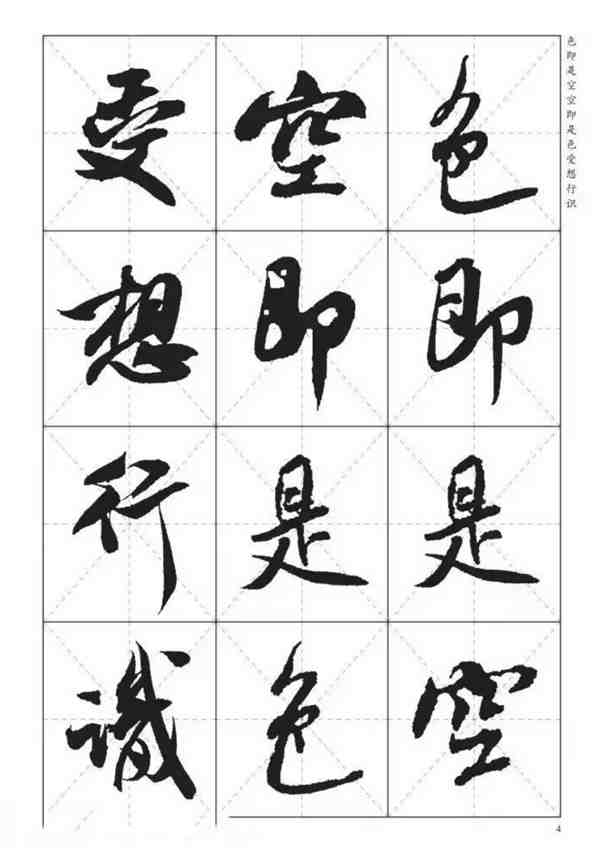 色即是空空即是色受想行识
色即是空
空即是色
受想行識
4